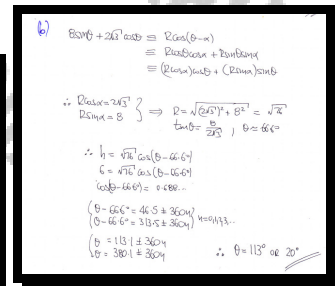 (b)
8sinθ + 2√3 cosθ ≡ Rcos(θ-α)
≡ Rcosθcosα + Rsinθsinα
≡ (Rcosα)cosθ + (Rsinα)sinθ
∴ Rcosα = 2√3
Rsinα = 8 } ⟹ R = √(2√3)² + 8² = √76
tanθ = 8/2√3 , θ ≈ 66.6°
∴ h = √76 cos(θ-66.6°)
6 = √76 cos(θ-66.6°)
cos(θ-66.6°) = 0.688...
(θ-66.6° = 46.5 ± 360n
(θ-66.6° = 313.5 ± 360n) n=0,1,2,3,...
(θ = 113.1 ± 360n
(θ = 380.1 ± 360n
∴ θ = 113° OR 20°